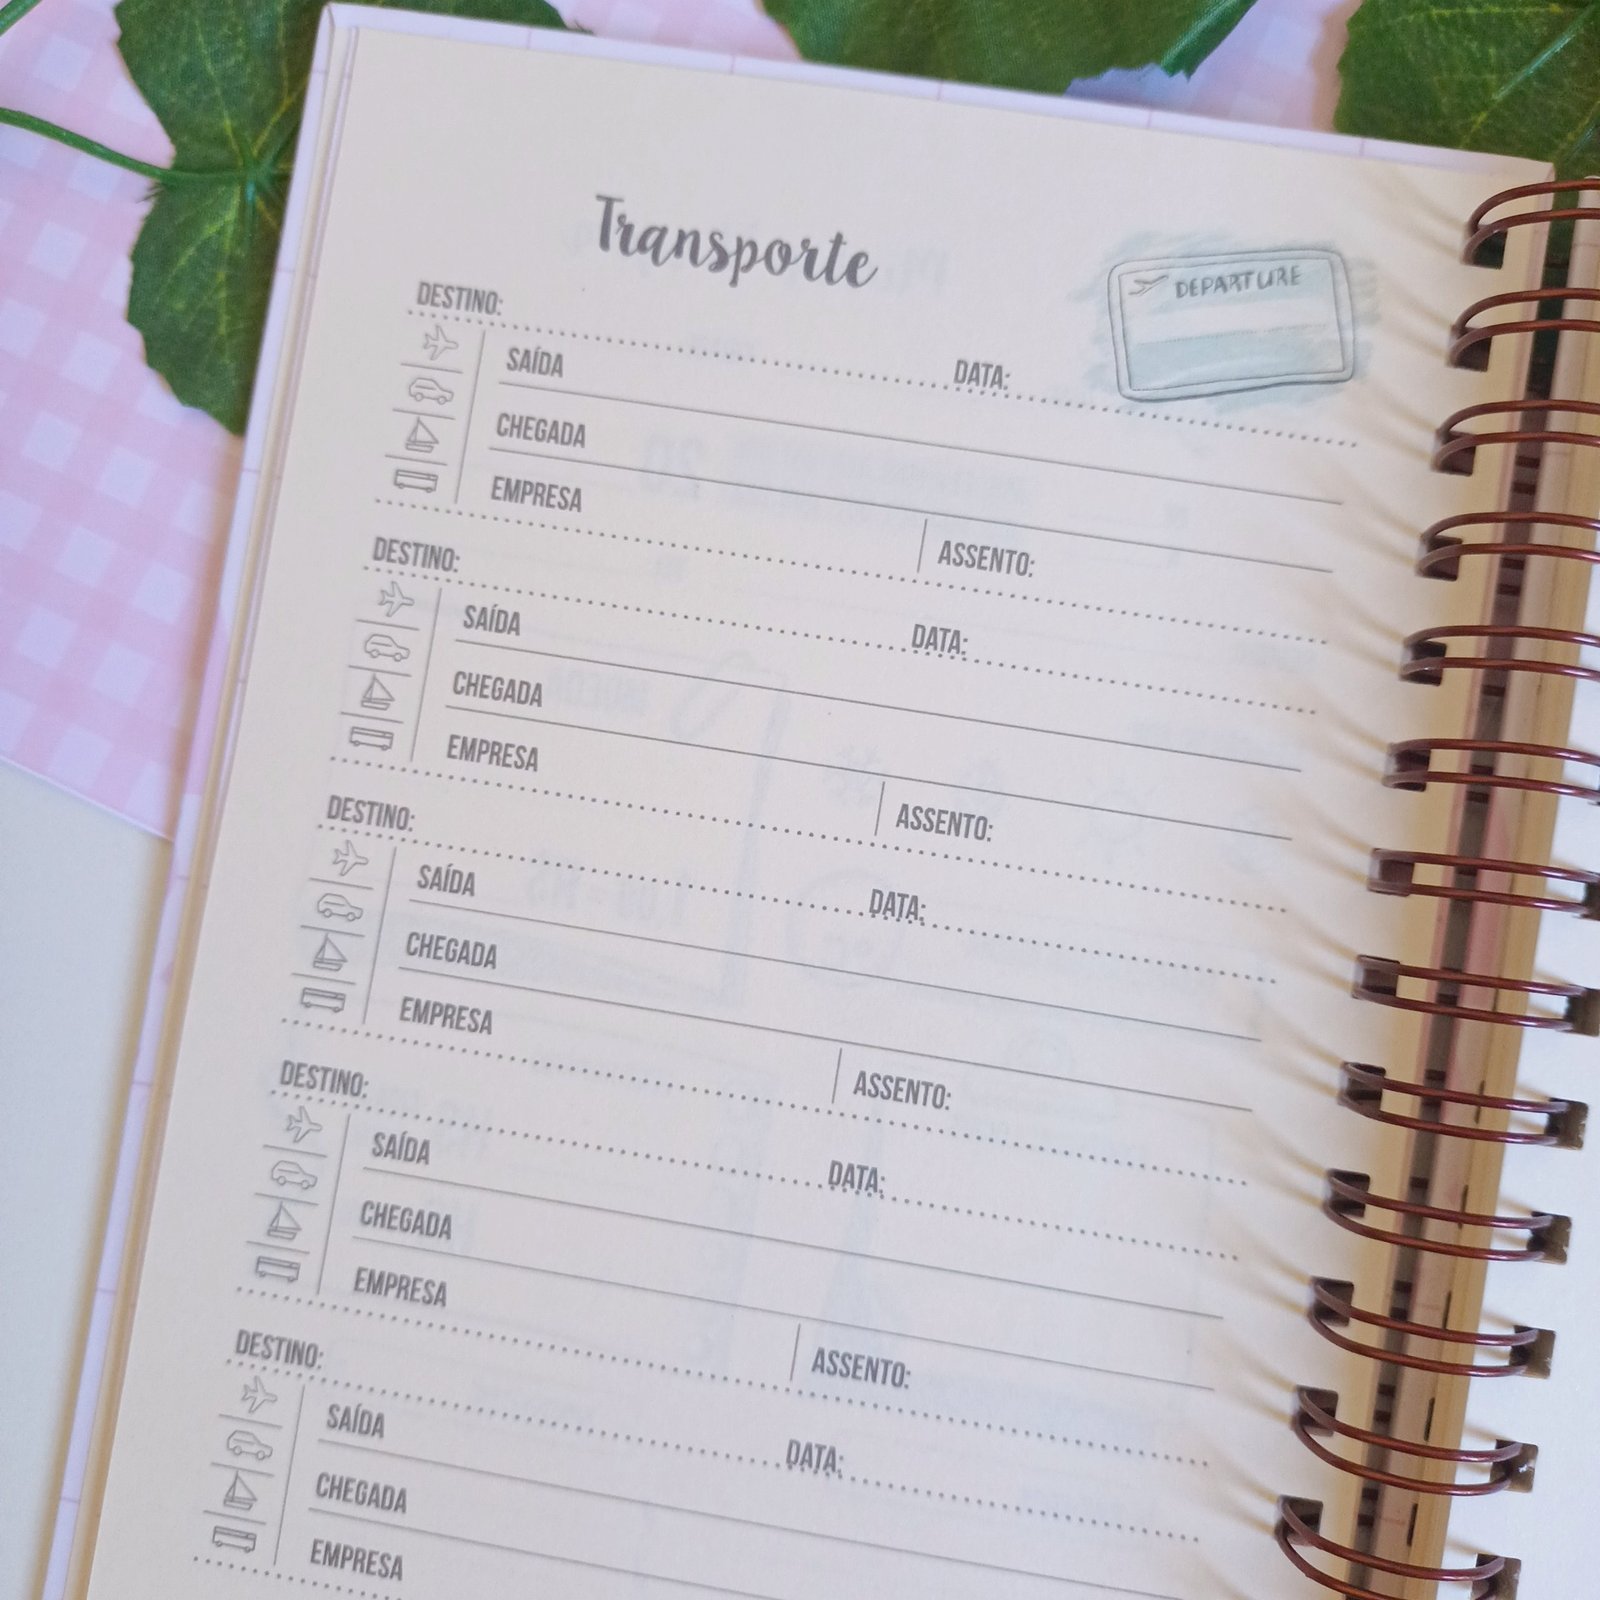 Transporte
DEPARTURE
DESTINO:
DATA:
SAÍDA
CHEGADA
EMPRESA
ASSENTO:
DESTINO:
DATA:
SAÍDA
CHEGADA
EMPRESA
ASSENTO:
DESTINO:
DATA:
SAÍDA
CHEGADA
EMPRESA
ASSENTO:
DESTINO:
DATA:
SAÍDA
CHEGADA
EMPRESA
ASSENTO:
DESTINO:
DATA:
SAÍDA
CHEGADA
EMPRESA